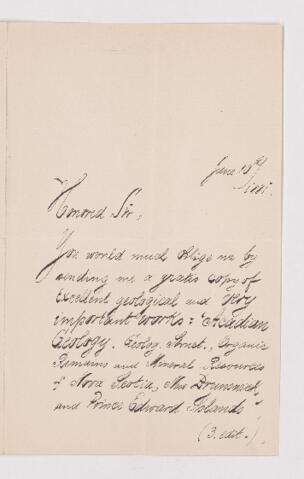 June 13th
Honored Sir,
You would much oblige me by
sending me a gratis copy of
excellent geological and very
important works: "Acadian
Geology. Geolog. Struct., Organic
Remains and Mineral Resources
of Nova Scotia, New Brunswick,
and Prince Edward Islands"
(3. edit.)